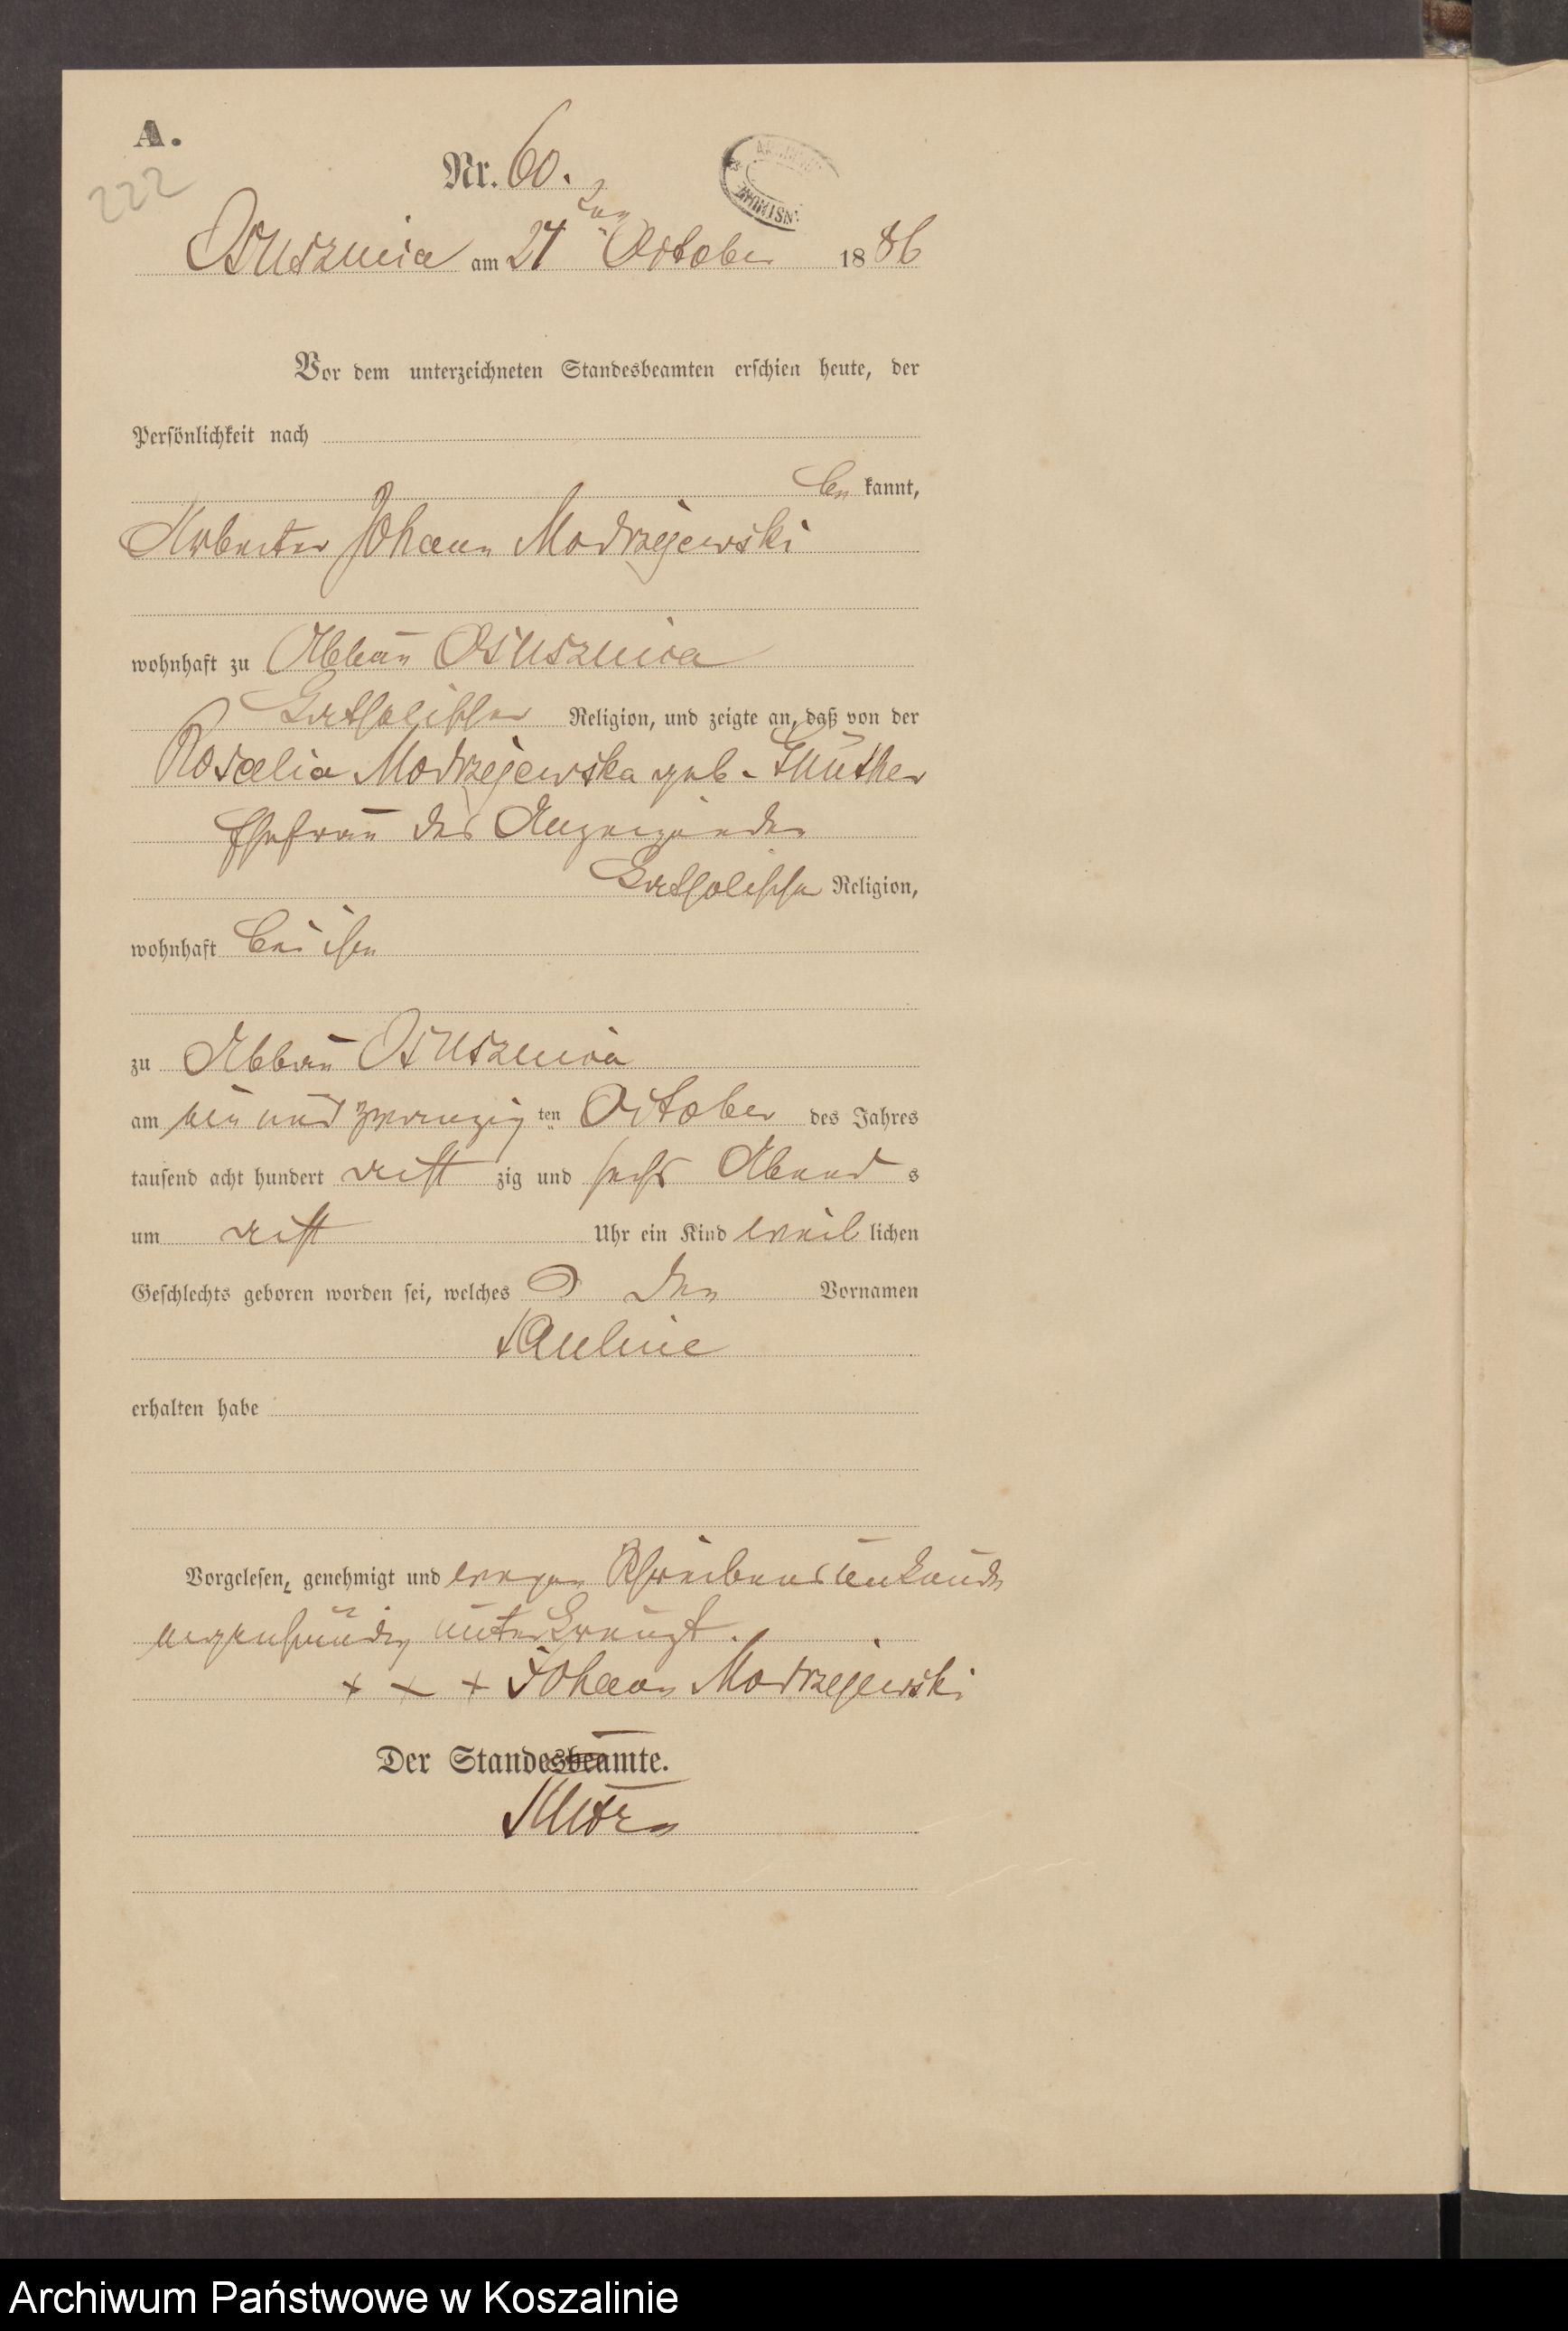 A.
222
Nr. 60.
Osusznica am 27 ten October 1886
Vor dem unterzeichneten Standesbeamten erschien heute, der
Persönlichkeit nach
be kannt,
Arbeiter Johann Modrzejewski
wohnhaft zu Abbau Osusznica
katholischer Religion, und zeigte an, daß von der
Rosalia Modrzejewska geb.
Ehefrau des Anzeigenden
katholischer Religion,
wohnhaft bei ihm
zu Abbau Osusznica
am ein und zwanzig ten October des Jahres
tausend acht hundert acht zig und sechs Abend s
um acht Uhr ein Kind weib lichen
Geschlechts geboren worden sei, welches den Vornamen
Pauline
erhalten habe
Vorgelesen, genehmigt und wegen Schreibensunkunde
eigenhändig unterkreuzt.
+ + + Johann Modrzejewski
Der Standesbeamte.
Archiwum Państwowe w Koszalinie